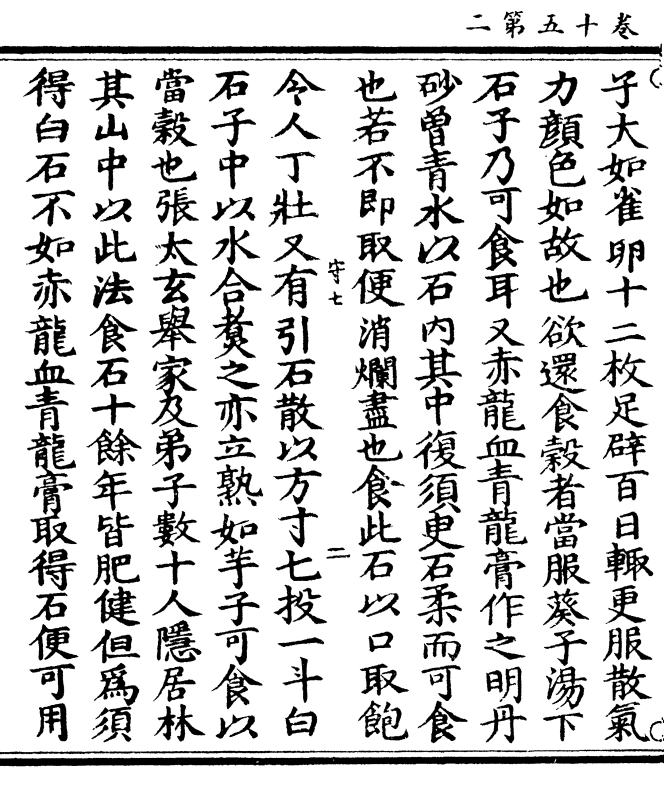 卷十五第二
子大如雀卵十二枚足辟百日輙更服散氣
力顏色如故也欲還食穀者當服葵子湯下
石子乃可食耳又赤龍血青龍膏作之明丹
砂曽青水以石内其中復須臾石柔而可食
也若不即取便消爛盡也食此石以口取飽
守七
二
令人丁壯又有引石散以方寸七投一斗白
石子中以水合煑之亦立熟如芋子可食以
當穀也張太玄舉家及弟子數十人隱居林
其山中以此法食石十餘年皆肥健但爲須
得白石不如赤龍血青龍膏取得石便可用